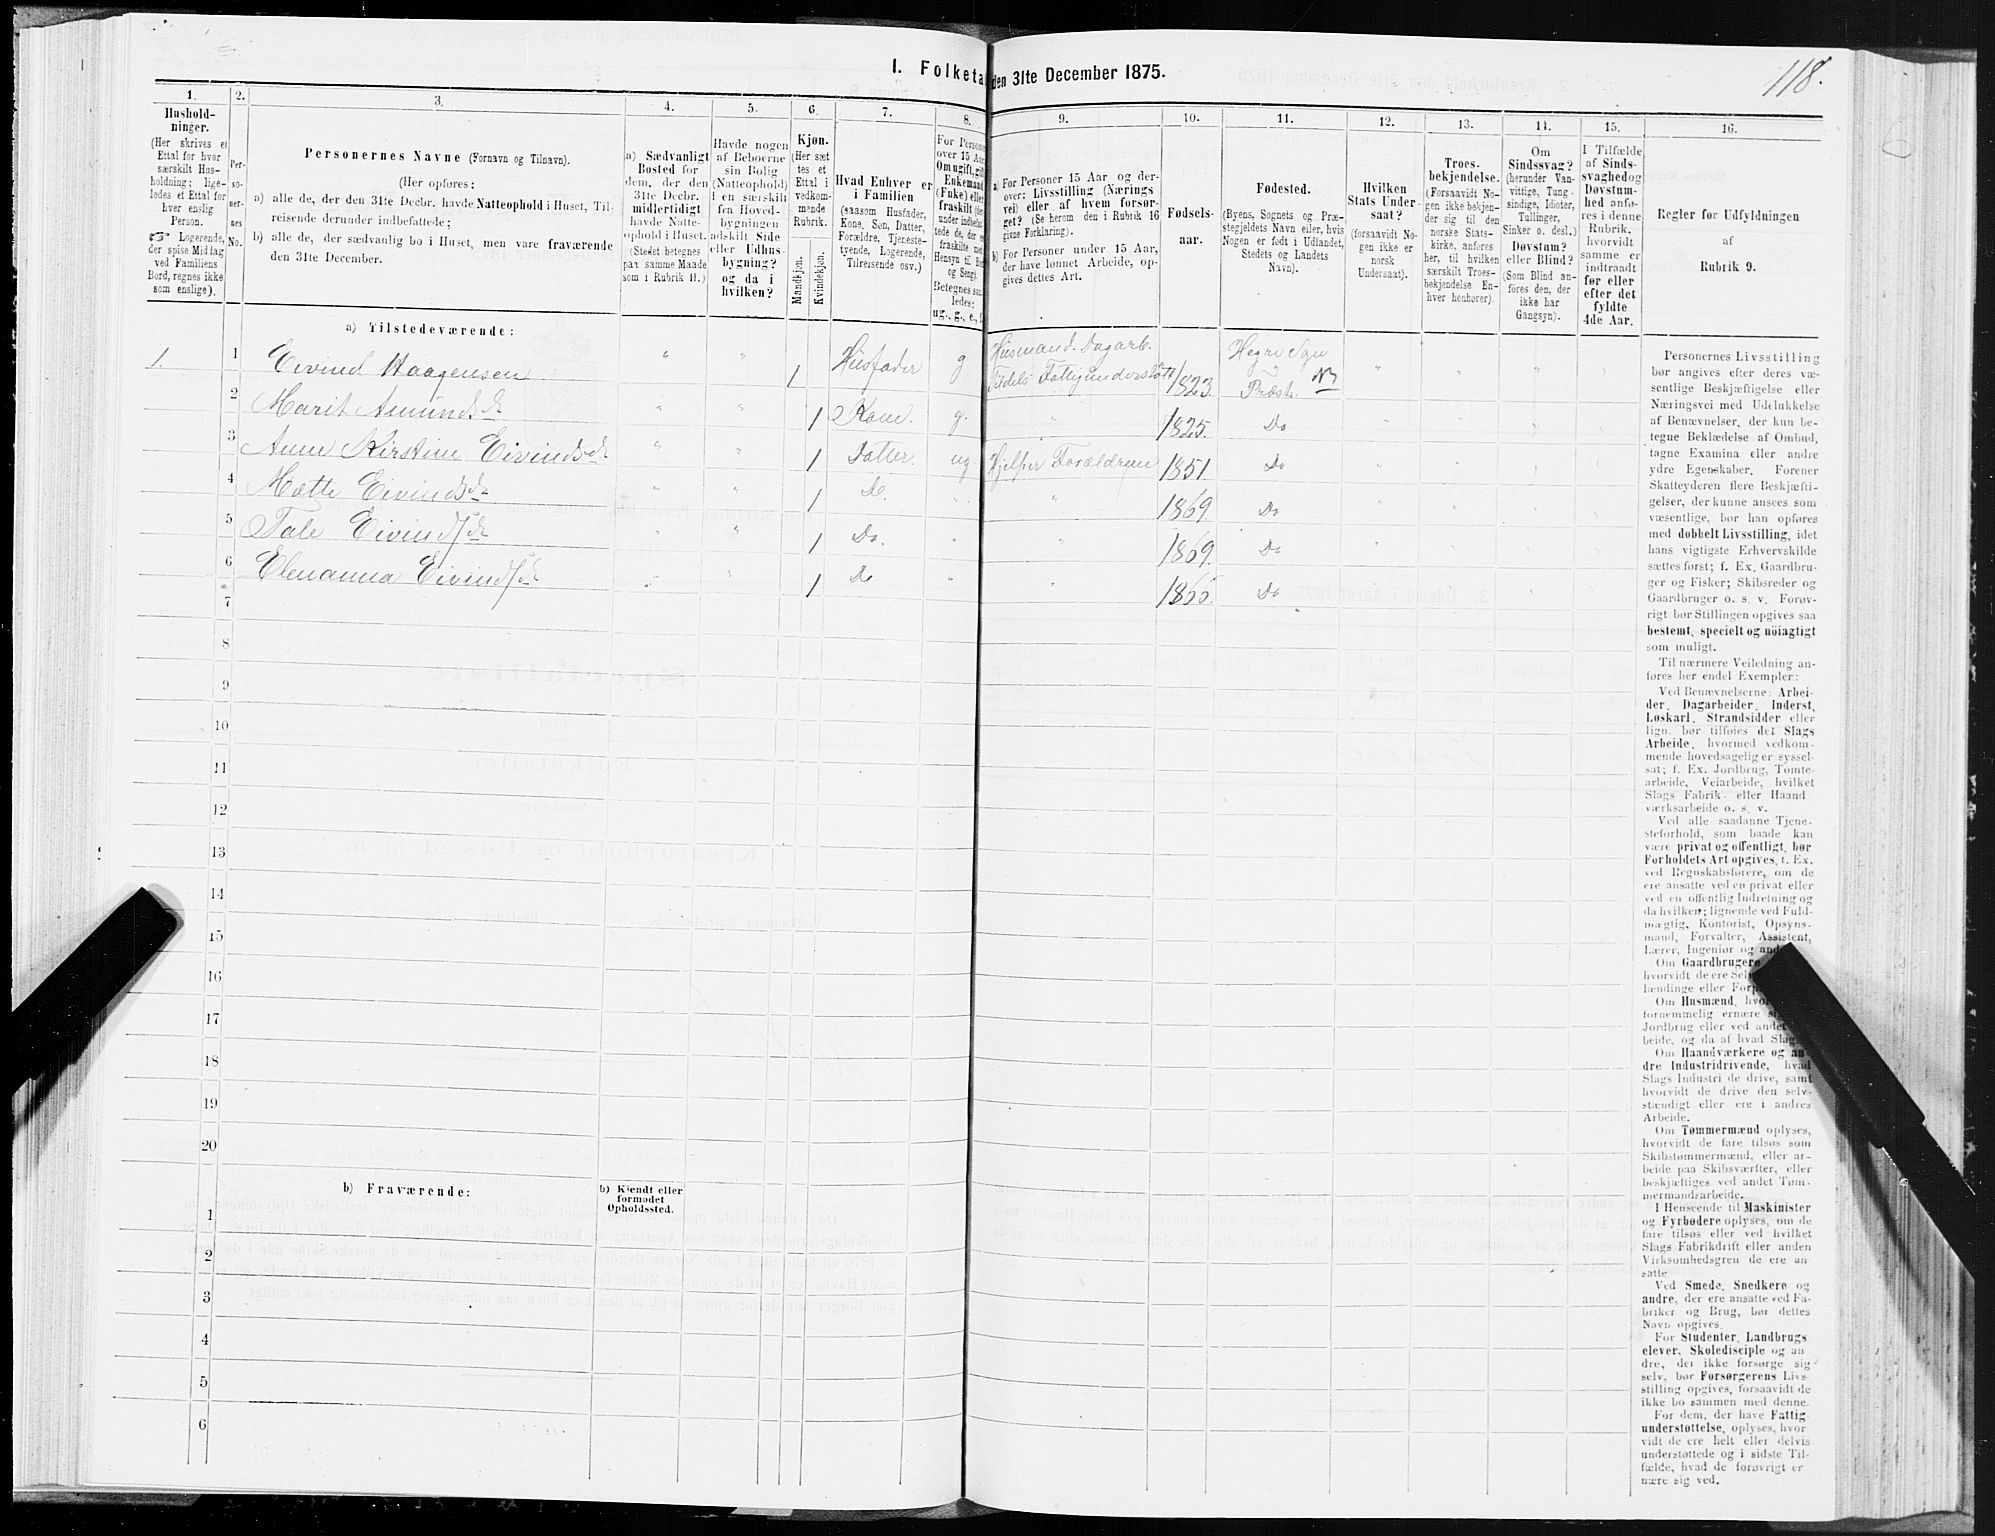 118.
I. Folketa
den 31te December 1875.
1.
Hushold-
ninger.
(Her skrives et
Ettal for hver
særskilt Hus-
holdning; lige-
ledes et Ettal for
hver enslig
Person.
☞ Logerende,
der spise Middag
ved Familiens
Bord, regnes ikke
som enslige).
2.
Per-
so-
ner-
nes
No.
3.
Personernes Navne (Fornavn og Tilnavn).
(Her opføres:
a) alle de, der den 31te Decbr. havde Natteophold i Huset, Til-
reisende derunder indbefattede;
b) alle de, der sædvanlig bo i Huset, men vare fraværende
den 31te December.
4.
a) Sædvanligt
Bosted for
dem, der den
31te Decbr.
midlertidigt
havde Natte-
ophold i Huset.
(Stedet betegnes
paa samme Maade
som i Rubrik 11.)
5.
Havde nogen
af Beboerne
sin Bolig
(Natteophold)
i en særskilt
fra Hoved-
bygningen
adskilt Side
eller Udhus-
bygning?
og da i
hvilken?
6.
Kjøn.
(Her sæt
tes et
Ettal i
vedkom-
mende
Rubrik.
Mandkjøn.
Kvindekjøn.
7.
Hvad Enhver er
i Familien
(saasom Husfader,
Kone, Søn, Datter,
Forældre, Tjeneste-
tyende, Logerende,
Tilreisende osv.)
8.
For Personer
over 15 Aar
Om ugift, gift,
Enkemand
(Enke) eller
fraskilt (der-
under indbefat-
tede de, der ere
fraskilte med
Hensyn til Bord
og Seng).
Betegnes saa-
ledes:
ug., g., e., f.
9.
a) For Personer 15 Aar og der-
over: Livsstilling (Nærings
vei) eller af hvem forsør-
get? (Se herom den i Rubrik 16
givne Forklaring).
b) For Personer under 15 Aar,
der have lønnet Arbeide, op-
gives dettes Art.
10.
Fødsels-
aar.
11.
Fødested.
(Byens, Sognets og Præ-
stegjeldets Navn eller, hvis
Nogen er født i Udlandet,
Stedets og Landets
Navn).
12.
Hvilken
Stats Under-
saat?
(forsaavidt No-
gen ikke er
norsk
Undersaat).
13.
Troes-
bekjendelse.
(Forsaavidt No-
gen ikke bekjen-
der sig til den
norske Stats-
kirke, anføres
her, til hvilken
særskilt Troes-
bekjendelse En-
hver henhører).
14.
Om
Sindssvag?
(herunder Van-
vittige, Tung-
sindige, Idioter,
Tullinger,
Sinker o. desl.)
Døvstum?
eller Blind?
(Som Blind an-
føres den, der
ikke har
Gangsyn).
15.
I Tilfælde
af Sinds-
svaghed og
Døvstum-
hed anfø-
res i denne
Rubrik,
hvorvidt
samme er
indtraadt
før eller
efter det
fyldte
4de Aar.
16.
Regler for Udfyldningen
af
Rubrik 9.
a) Tilstedeværende:
1. 1 Eivind Haagensen " " 1 Husfader g Husmand. Dagarb. Tildels Fattigunderstøtt 1823. Hegre Sogn og Præst.
2 Marit Amundsdr " " 1 Kone. g. " 1825. Do
3 Anne Kirstine Eivindsdr " " 1 Datter. ug. Hjelper Forældrene 1851. Do
4 Mætte Eivindsdr " " 1 Do. " " 1869. Do
5 Tale Eivindsdr " " 1 Do. " " 1869. Do
6 Elenanna Eivindsdr " " 1 Do " " 1866. Do
7
8
9
10
11
12
13
14
15
16
17
18
19
20
b) Fraværende:
b) Kjendt eller
formodet
Opholdssted.
1
2
3
4
5
6
Personernes Livsstilling
bør angives efter deres væ-
sentlige Beskjæftigelse eller
Næringsvei med Udelukkelse
af Benævnelser, der kun be-
tegne Beklædelse af Ombud,
tagne Examina eller andre
ydre Egenskaber. Forener
Skatteyderen flere Beskjæfti-
gelser, der kunne ansees som
væsentlige, bør han opføres
med dobbelt Livsstilling, idet
hans vigtigste Erhvervskilde
sættes først; f. Ex. Gaardbru-
ger og Fisker; Skibsreder og
Gaardbruger o. s. v. Forøv-
rigt bør Stillingen opgives saa
bestemt, specielt og nøiagtigt
som muligt.
Til nærmere Veiledning an-
føres her endel Exempler:
Ved Benævnelserne: Arbei-
der, Dagarbeider, Inderst,
Løskarl, Strandsidder eller
lign. bør tilføies det Slags
Arbeide, hvormed vedkom-
mende hovedsagelig er syssel-
sat; f. Ex. Jordbrug, Tomte-
arbeide, Veiarbeide, hvilket
Slags Fabrik- eller Haand
værksarbeide o. s. v.
Ved alle saadanne Tjene-
steforhold, som baade kan
være privat og offentligt, bør
Forholdets Art opgives, f. Ex.
ved Regnskabsførere, om de
ere ansatte ved en privat eller
ved en offentlig Indretning og
da hvilken; lignende ved Fuld-
mægtig, Kontorist, Opsyns-
mand, Forvalter, Assistent,
Lærer, Ingeniør og
Om Gaardbrugere
hvorvidt de ere
lændinge eller
Om Husmænd,
fornemmelig ernære
Jordbrug eller ved andet
beide, og da af hvad Slag
Om Haandværkere og an-
dre Industridrivende, hvad
Slags Industri de drive, samt
hvorvidt de drive den selv-
stændigt eller ere i andres
Arbeide.
Om Tømmermænd oplyses,
hvorvidt de fare tilsøs som
Skibstømmermænd, eller ar-
beide paa Skibsværfter, eller
beskjæftiges ved andet Tøm-
mermandsarbeide.
I Henseende til Maskinister
og Fyrbødere oplyses, om de
fare tilsøs eller ved hvilket
Slags Fabrikdrift eller anden
Virksomhedsgren de ere an-
satte
Ved Smede, Snedkere og
andre, der ere ansatte ved Fa-
briker og Brug, bør dettes
Navn opgives.
For Studenter, Landbrugs-
elever, Skoledisciple og an-
dre, der ikke forsørge sig
selv, bør Forsørgerens Livs-
stilling opgives, forsaavidt de
ikke bo sammen med denne.
For dem, der have Fattig-
understøttelse, oplyses, hvor-
vidt de ere helt eller delvis
understøttede og i sidste Til-
fælde, hvad de forøvrigt er
nære sig ved.